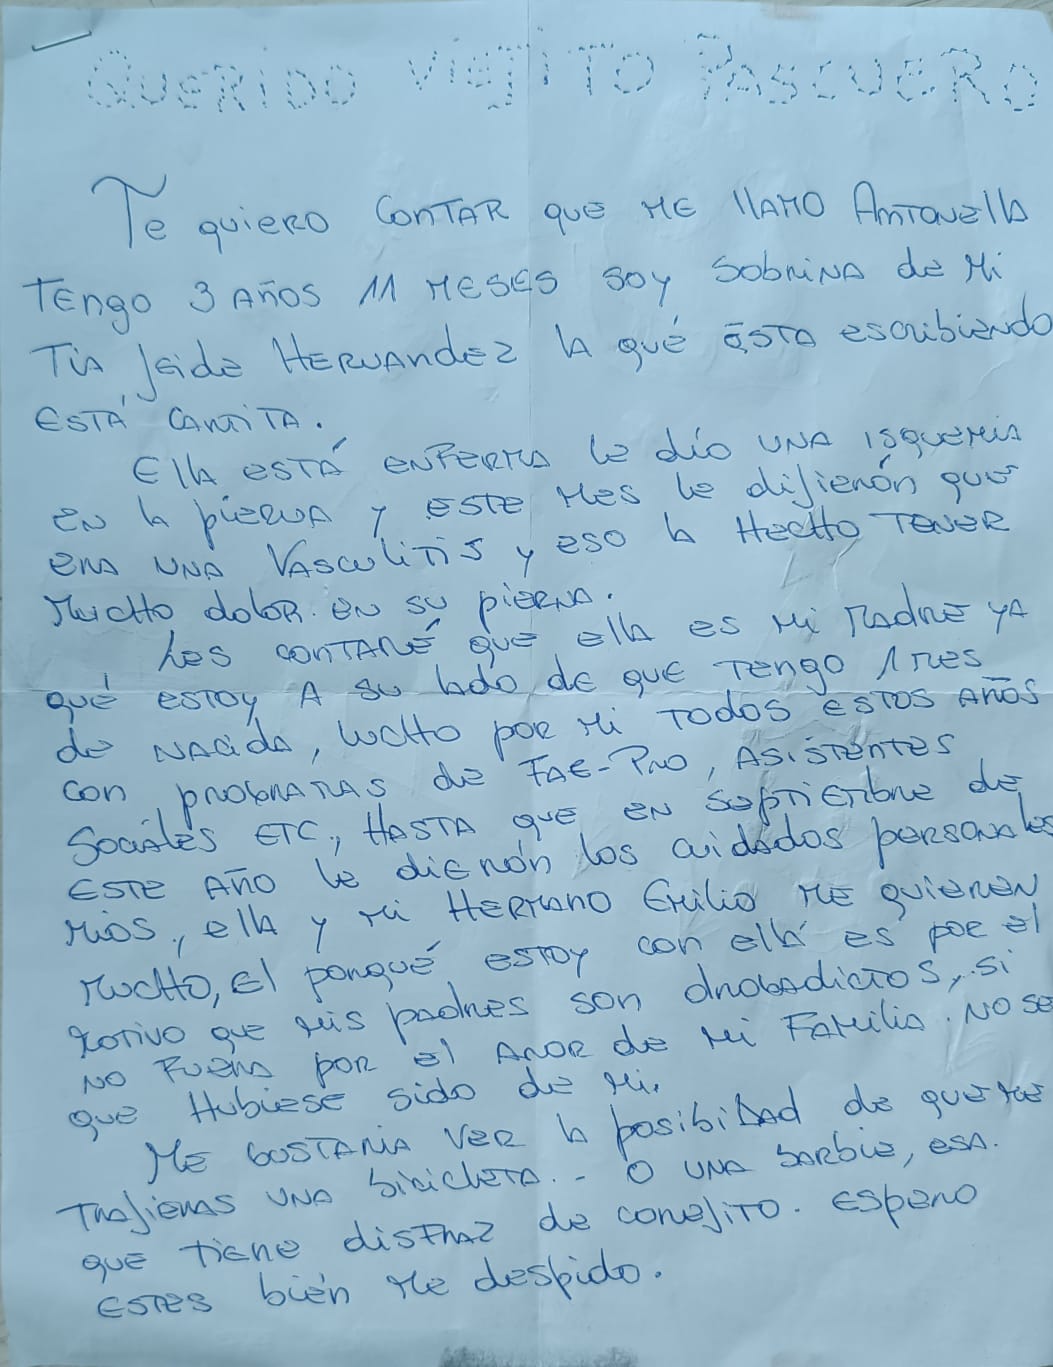 Querido Viejito Pascuero
Te quiero contar que me llamo Antonella
Tengo 3 años 11 meses soy sobrina de mi
Tía Jeide Hernandez la qué ésta escribiendo
está cartita.
Ella está enferma le dío una isquemia
en la pierna y este mes le dijierón que
era una Vasculitis y eso la hecho tener
mucho dolor en su pierna.
Les contaré que ella es mi madre ya
qué estoy a su lado de que tengo 1 mes
de nacida, lucho por mi todos estos años
con programas de FAE-Pro, Asistentes
Sociales etc., hasta que en septiembre de
este año le dierón los cuidados personales
mios, ella y mi hermano Emilio me quieren
mucho, el porqué estoy con ella es por el
motivo que mis padres son drogadictos, si
no fuera por el amor de mi familia. No se
que hubiese sido de mi.
Me gustaria ver la posibilidad de que me
trajieras una bicicleta.. - o una barbie, esa.
que tiene disfraz de conejito. espero
estes bién me despido.